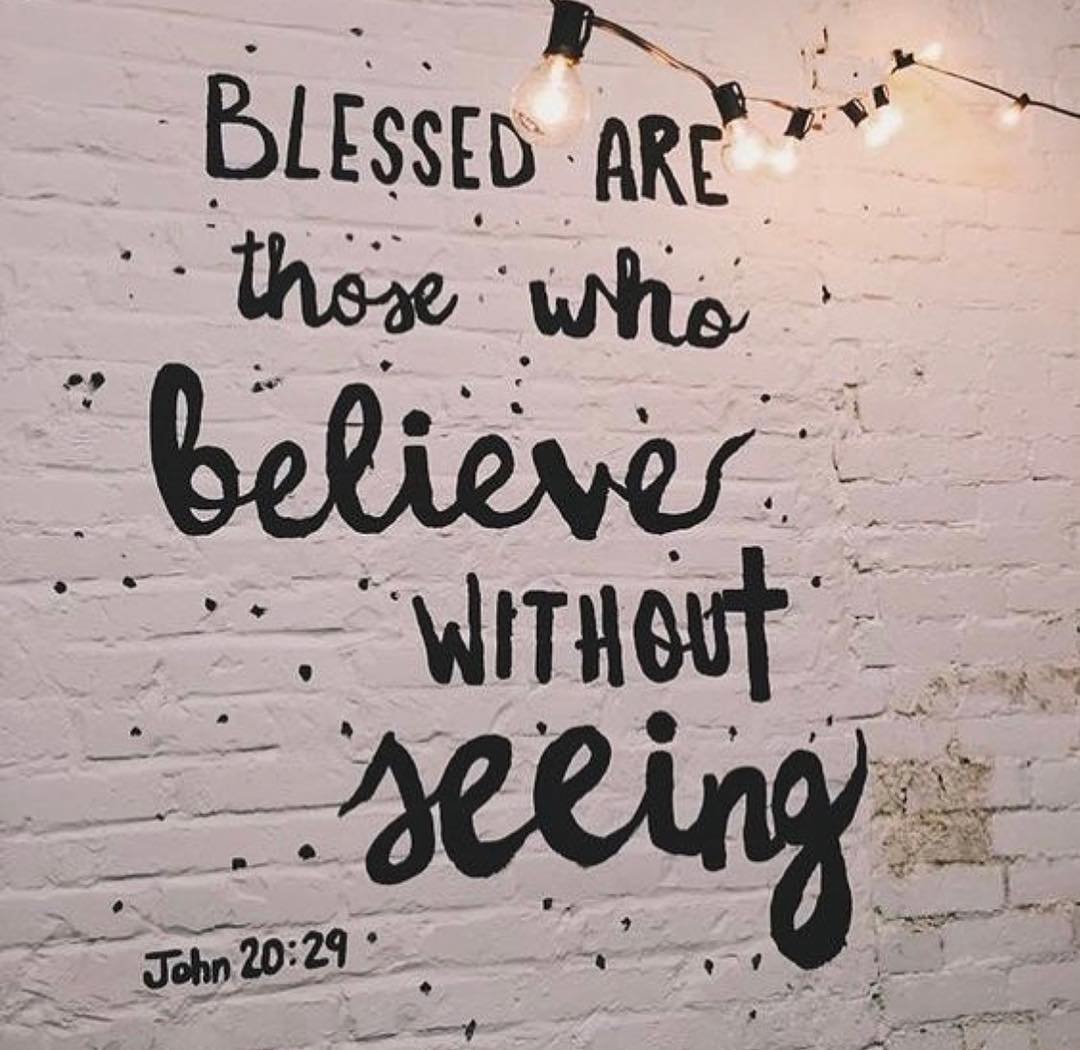 BLESSED ARE
those who
believe
WITHOUT
seeing
John 20:29